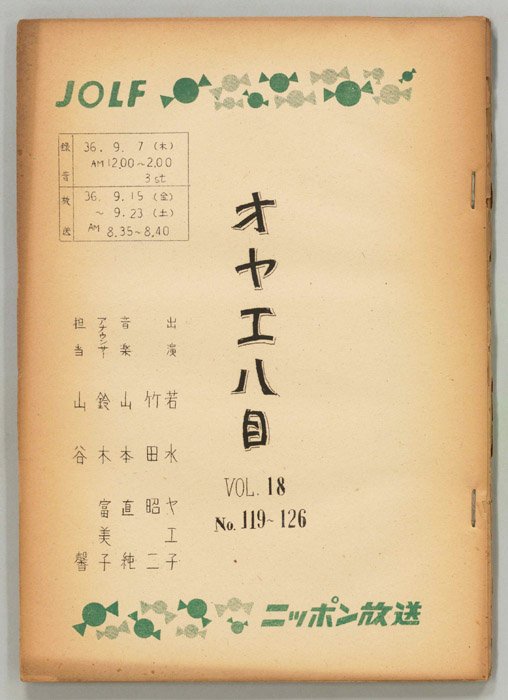 JOLF
録音
36. 9. 7 (木)
AM 12.00~2.00
3 st
放送
36. 9.15 (金)
~ 9.23 (土)
AM 8.35~8.40
オヤエ八目
VOL. 18
No. 119~126
出演 若水ヤエ子
竹田昭二
音楽 山本直純
アナウンサー 鈴木富美子
担当 山谷馨
ニッポン放送